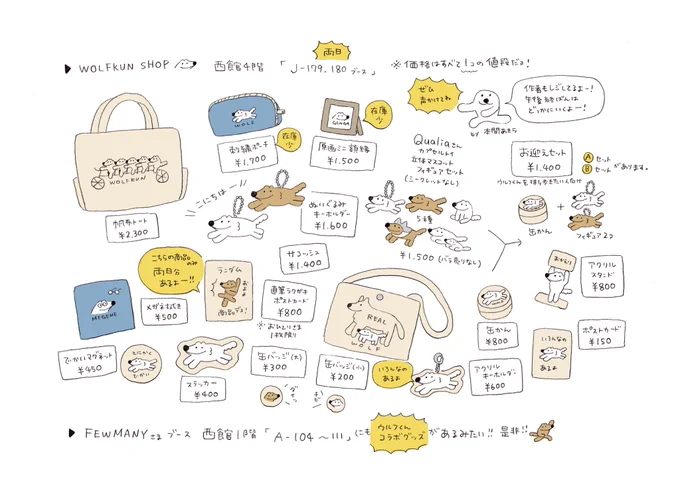 両日
▶ WOLFKUN SHOP 西館4階 「J-179,180 ブース」 ※価格はすべて1コの値段だよ!
WOLF
在庫少
刺繍ポーチ
¥1,700
在庫少
原画ミニ額縁
¥1,500
WOLFKUN
帆布トート
¥2,300
こにちはー
ぬいぐるみ
キーホルダー
¥1,600
サコッシュ
¥1,400
ぜひ
声かけてね
作者もしごしてるよー!
by 本間あきら
Qualiaさん
カプセルトイ
立体マスコット
フィギュアセット
(シークレットなし)
5種
¥1,500 (バラ売りなし)
お迎えセット
¥1,400
Aセット
Bセット があります。
缶かん
+
フィギュア2コ
こちらの商品のみ
両日分
あるよー!!
HYGIENE
メガネふき
¥500
ランダム
商品デス!
直筆ラクガキ
ポストカード
¥800
※おひとりさま
1枚限り
REAL
WOLF
缶かん
¥800
おかえり
アクリル
スタンド
¥800
でかいマグネット
¥450
とにかく
でかい
ステッカー
¥400
缶バッジ(大)
¥300
缶バッジ(小)
¥200
いろんなの
あるよ
アクリル
キーホルダー
¥600
いろんなの
あるよ
ポストカード
¥150
▶ FEWMANYさまブース 西館1階 「A-104〜111」にも ウルフくん コラボグッズ があるみたい!! 是非!!